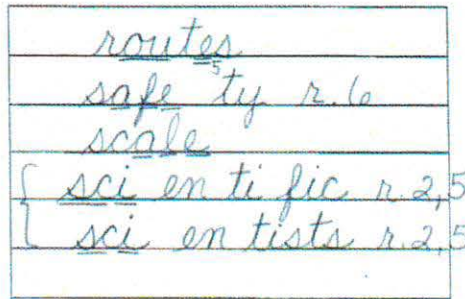 routes
safe⁵ ty r. 6
scale
{ sci en ti fic r. 2, 5
{ sci en tists r. 2, 5